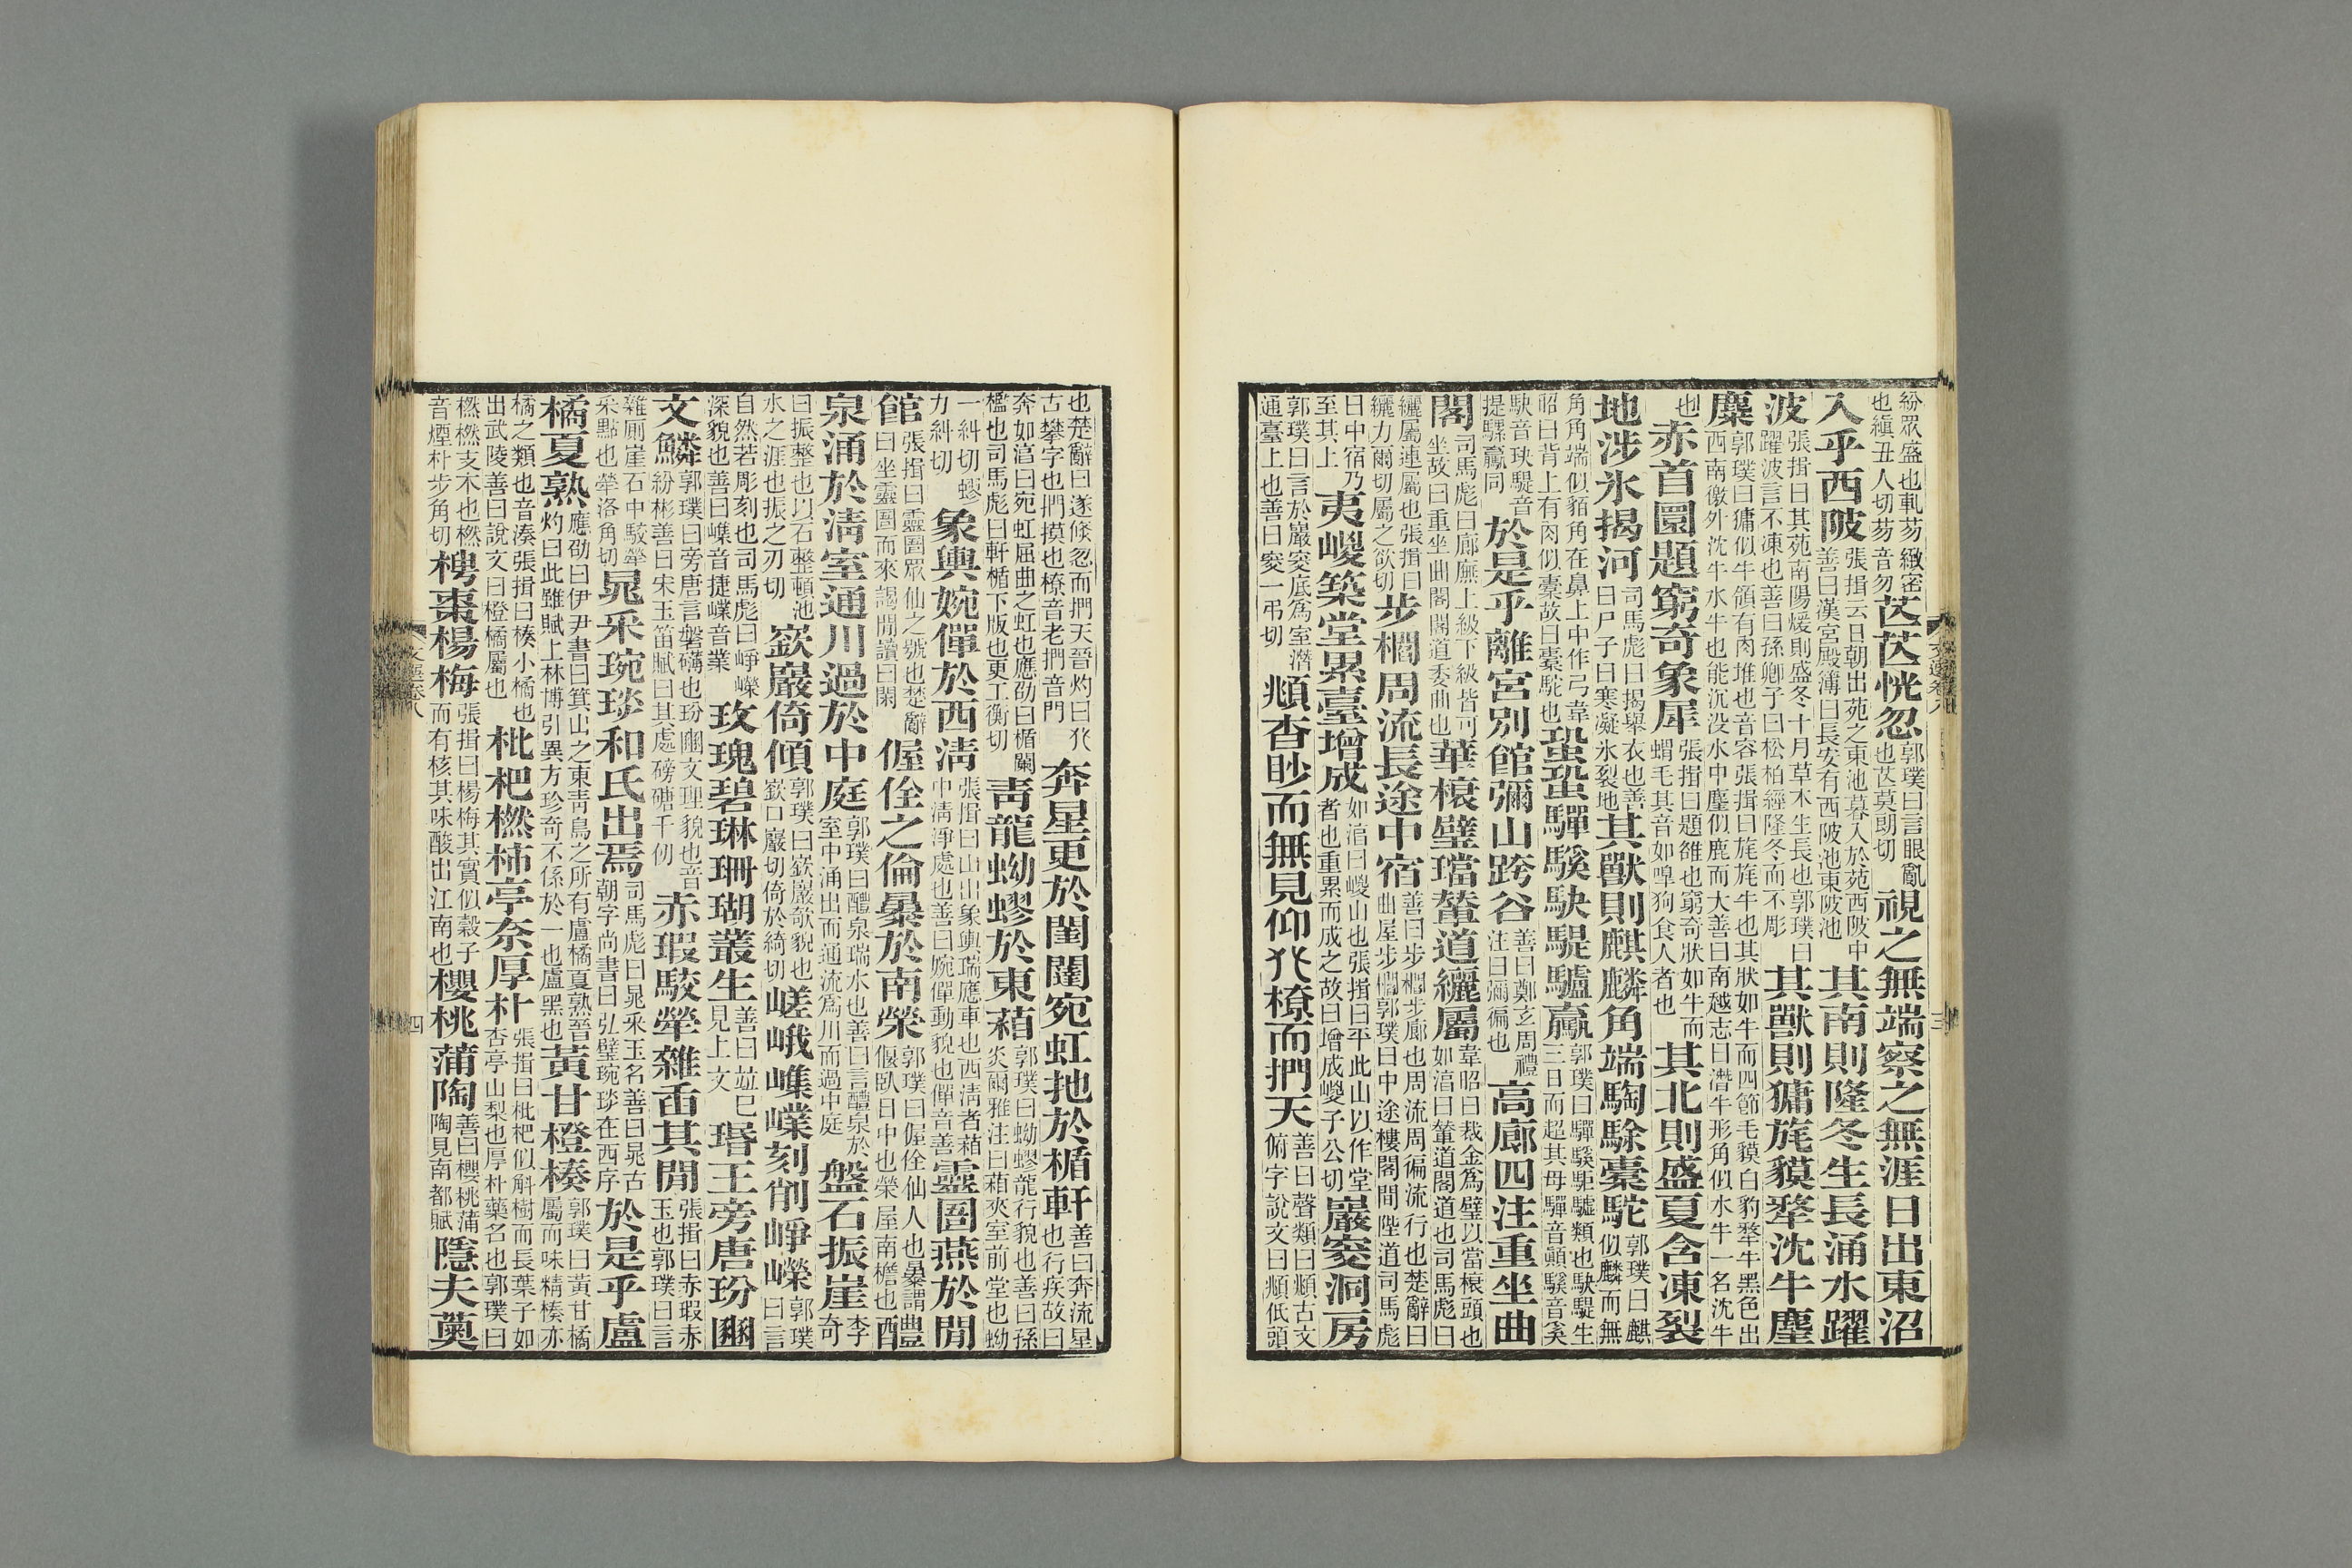 紛眾盛也軋芴緻密也縝丑人切芴音勿芒芒恍忽郭璞曰言眼亂也芒莫朗切視之無端察之無涯日出東沼
入乎西陂張揖云日朝出苑之東池暮入於苑西陂中善曰漢宮殿簿曰長安有西陂池東陂池其南則隆冬生長涌水躍
波張揖曰其苑南陽煖則盛冬十月草木生長也郭璞曰躍波言不凍也善曰孫卿子曰松柏經隆冬而不彫其獸則㺎旄貘犛沈牛麈
麋郭璞曰㺎似牛領有肉堆也音容張揖曰旄旄牛也其狀如牛而四節毛貘白豹犛牛黑色出西南徼外沈牛水牛也能沉没水中麈似鹿而大善曰南越志曰潛牛形角似水牛一名沈牛
也赤首圜題窮奇象犀張揖曰題雒也窮奇狀如牛而蝟毛其音如嘷狗食人者也其北則盛夏含凍裂
地涉氷揭河司馬彪曰揭舉衣也善曰尸子曰寒凝氷裂地其獸則麒麟角端騊駼橐駝郭璞曰麒似麟而無
角角端似貊角在鼻上中作弓韋昭曰背上有肉似橐故曰橐駝也蛩蛩驒騱駃騠驢驘郭璞曰驒騱駏驉類也駃騠生三日而超其母驒音顛騱音奚
駃音玦騠音提騾驘同於是乎離宮別館彌山跨谷善曰鄭玄周禮注曰彌徧也高廊四注重坐曲
閣司馬彪曰廊廡上級下級皆可坐故曰重坐曲閣閣道委曲也華榱璧璫輦道纚屬韋昭曰裁金爲璧以當榱頭也如淳曰輦道閣道也司馬彪曰
纚屬連屬也張揖曰纚力爾切屬之欲切步櫩周流長途中宿善曰步櫩步廊也周流周徧流行也楚辭曰曲屋步櫩郭璞曰中途樓閣間陛道司馬彪
曰中宿乃至其上夷嵕築堂累臺增成如淳曰嵕山也張揖曰平此山以作堂者也重累而成之故曰增成嵕子公切巖窔洞房
郭璞曰言於巖窔底爲室潛通臺上也善曰窔一弔切頫杳眇而無見仰𠬜橑而捫天善曰聲類曰頫古文俯字說文曰頫低頭
文選卷八
三
也楚辭曰遂倏忽而捫天晉灼曰𠬜古攀字也捫摸也橑音老捫音門奔星更於閨闥宛虹拖於楯軒善曰奔流星也行疾故曰
奔如淳曰宛虹屈曲之虹也應劭曰楯闌檻也司馬彪曰軒楯下版也更工衡切青龍蚴蟉於東葙郭璞曰蚴蟉龍行貌也善曰孫炎爾雅注曰葙夾室前堂也蚴
一糾切蟉力糾切象輿婉僤於西淸張揖曰山出象輿瑞應車也西淸者葙中淸淨處也善曰婉僤動貌也僤音善靈圄燕於閒
館張揖曰靈圄眾仙之號也楚辭曰坐靈圄而來謁閒讀曰閑偓佺之倫暴於南榮郭璞曰偓佺仙人也暴謂偃臥日中也榮屋南檐也醴
泉涌於淸室通川過於中庭郭璞曰醴泉瑞水也善曰言醴泉於室中涌出而通流爲川而過中庭盤石振崖李奇
曰振整也以石整頓池水之涯也振之刃切嶔巖倚傾郭璞曰嶔巖欹貌也嶔口巖切倚於綺切嵯峨㠎嶫刻削崢嶸郭璞曰言
自然若彫刻也司馬彪曰崢嶸深貌也善曰㠎音捷嶫音業玫瑰碧琳珊瑚叢生善曰並已見上文㻉玉旁唐玢豳
文鱗郭璞曰旁唐言磐礴也玢豳文理貌也音紛彬善曰宋玉笛賦曰其處磅磄千仞赤瑕駮犖雜臿其閒張揖曰赤瑕赤玉也郭璞曰言
雜厠崖石中駮犖采點也犖洛角切鼂采琬琰和氏出焉司馬彪曰鼂采玉名善曰鼂古朝字尚書曰弘璧琬琰在西序於是乎盧
橘夏熟應劭曰伊尹書曰箕山之東青鳥之所有盧橘夏熟晉灼曰此雖賦上林博引異方珍奇不係於一也盧黑也黃甘橙楱郭璞曰黃甘橘屬而味精楱亦
橘之類也音湊張揖曰楱小橘也出武陵善曰說文曰橙橘屬也枇杷橪柿亭柰厚朴張揖曰枇杷似斛樹而長葉子如杏亭山梨也厚朴藥名也郭璞曰
橪橪支木也橪音煙朴步角切梬棗楊梅張揖曰楊梅其實似縠子而有核其味酸出江南也櫻桃蒲陶善曰櫻桃蒲陶見南都賦隱夫薁
文選卷八
四